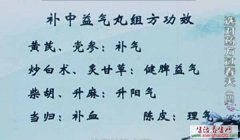 补中益气丸组方功效
黄芪、党参：补气
炒白术、炙甘草：健脾益气
柴胡、升麻：升阳气
当归：补血 陈皮：理气